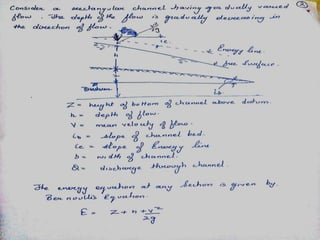 Consider a rectangular channel having gradually varied
flow. The depth of the flow is gradually decreasing in
the direction of flow.
Energy line
free surface
Datum
Z = height of bottom of channel above datum.
h = depth of flow.
V = mean velocity of flow.
ib = slope of channel bed.
ie = slope of Energy line
b = width of channel.
Q = discharge through channel.
The energy equation at any section is given by
Bernoullis Equation.
E = Z + h + V²/2g